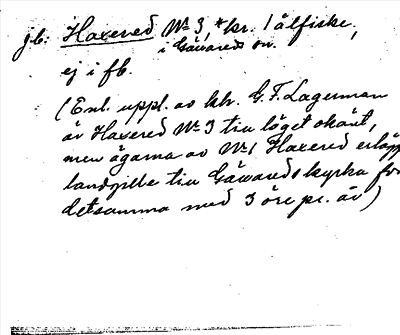 jb. Haxered No 3, *kr. 1 ålfiske,
i Gäwareds sn.
ej i fb.
(Enl. uppl. av kh. G.F. Lagerman
är Haxered No 3 till läget okänt,
men ägarna av No 1 Haxered erlägg
landgille till Gäwareds kyrka för
detsamma med 3 öre pr. år)